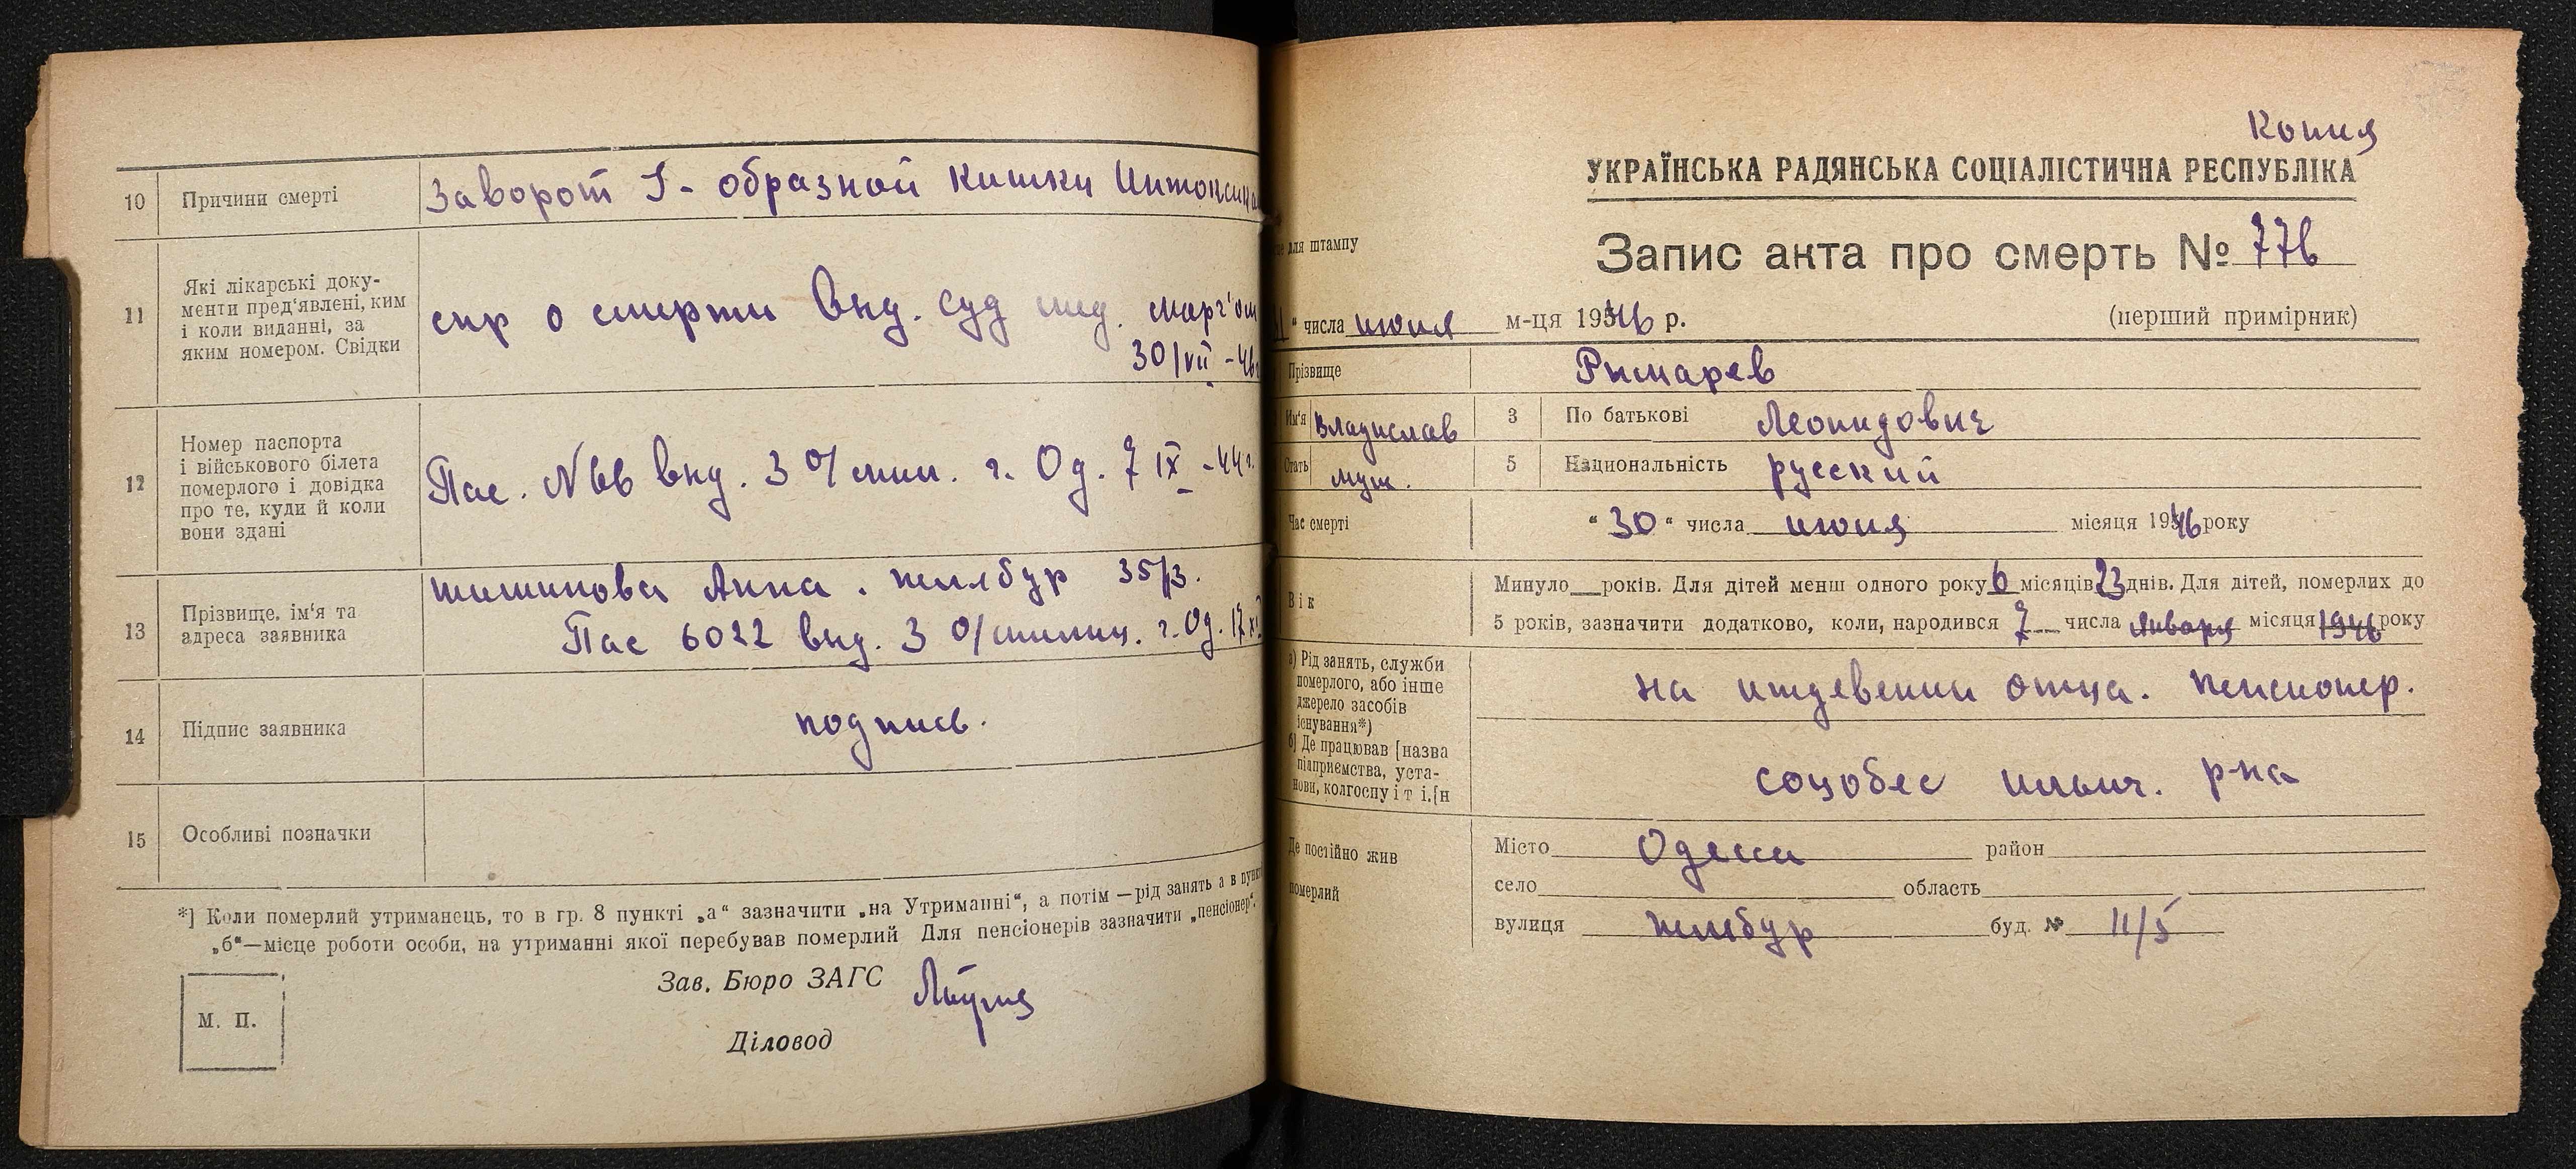 10 Причини смерті Заворот S-образной кишки Интоксикац
11 Які лікарські доку-
менти пред'явлені, ким
і коли виданні, за
яким номером. Свідки
спр о смерти выд. суд мед. морг'ом
30/VII-46
12 Номер паспорта
і військового білета
померлого і довідка
про те, куди й коли
вони здані
Пас. №66 выд. 3 о/мил. г. Од. 7 IX-44г.
13 Прізвище, ім'я та
адреса заявника
Шишкова Анна. 35/3.
Пас 6022 выд. 3 о/милиц. г. Од. 17
14 Підпис заявника подпись.
15 Особливі позначки
*] Коли померлий утриманець, то в гр. 8 пункті „а“ зазначити „на Утриманні“, а потім — рід занять а в пункті
„б“—місце роботи особи, на утриманні якої перебував померлий Для пенсіонерів зазначити „пенсіонер“.
Зав. Бюро ЗАГС
М. П.
Діловод
Копия
УКРАЇНСЬКА РАДЯНСЬКА СОЦІАЛІСТИЧНА РЕСПУБЛІКА
для штампу
Запис акта про смерть № 776
“ числа июля м-ця 1946 р. (перший примірник)
Прізвище Рымарев
Им'я Владислав 3 По батькові Леонидович
Стать муж. 5 Національність русский
Час смерті “30“ числа июля місяця 1946 року
Вік Минуло __ років. Для дітей менш одного року 6 місяців 23 днів. Для дітей, померлих до
5 років, зазначити додатково, коли, народився 7 числа Января місяця 1946 року
а) Рід занять, служби
померлого, або інше
джерело засобів
існування*)
на иждевении отца. пенсионер.
б] Де працював [назва
підприємства, уста-
нови, колгоспу і т і.[н
соцобес ильич. р-на
Де постійно жив
померлий
Місто Одесса район
село область
вулиця буд. № 11/5